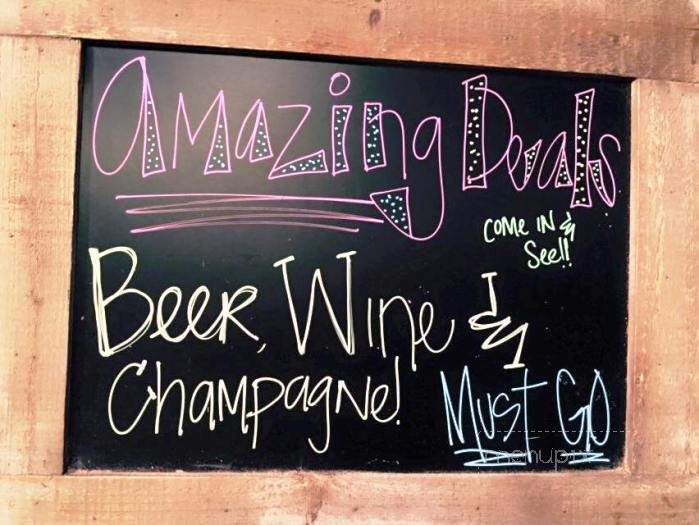 Amazing Deals
COME IN &
See!!
Beer, Wine &
Champagne!
Must GO
menupix